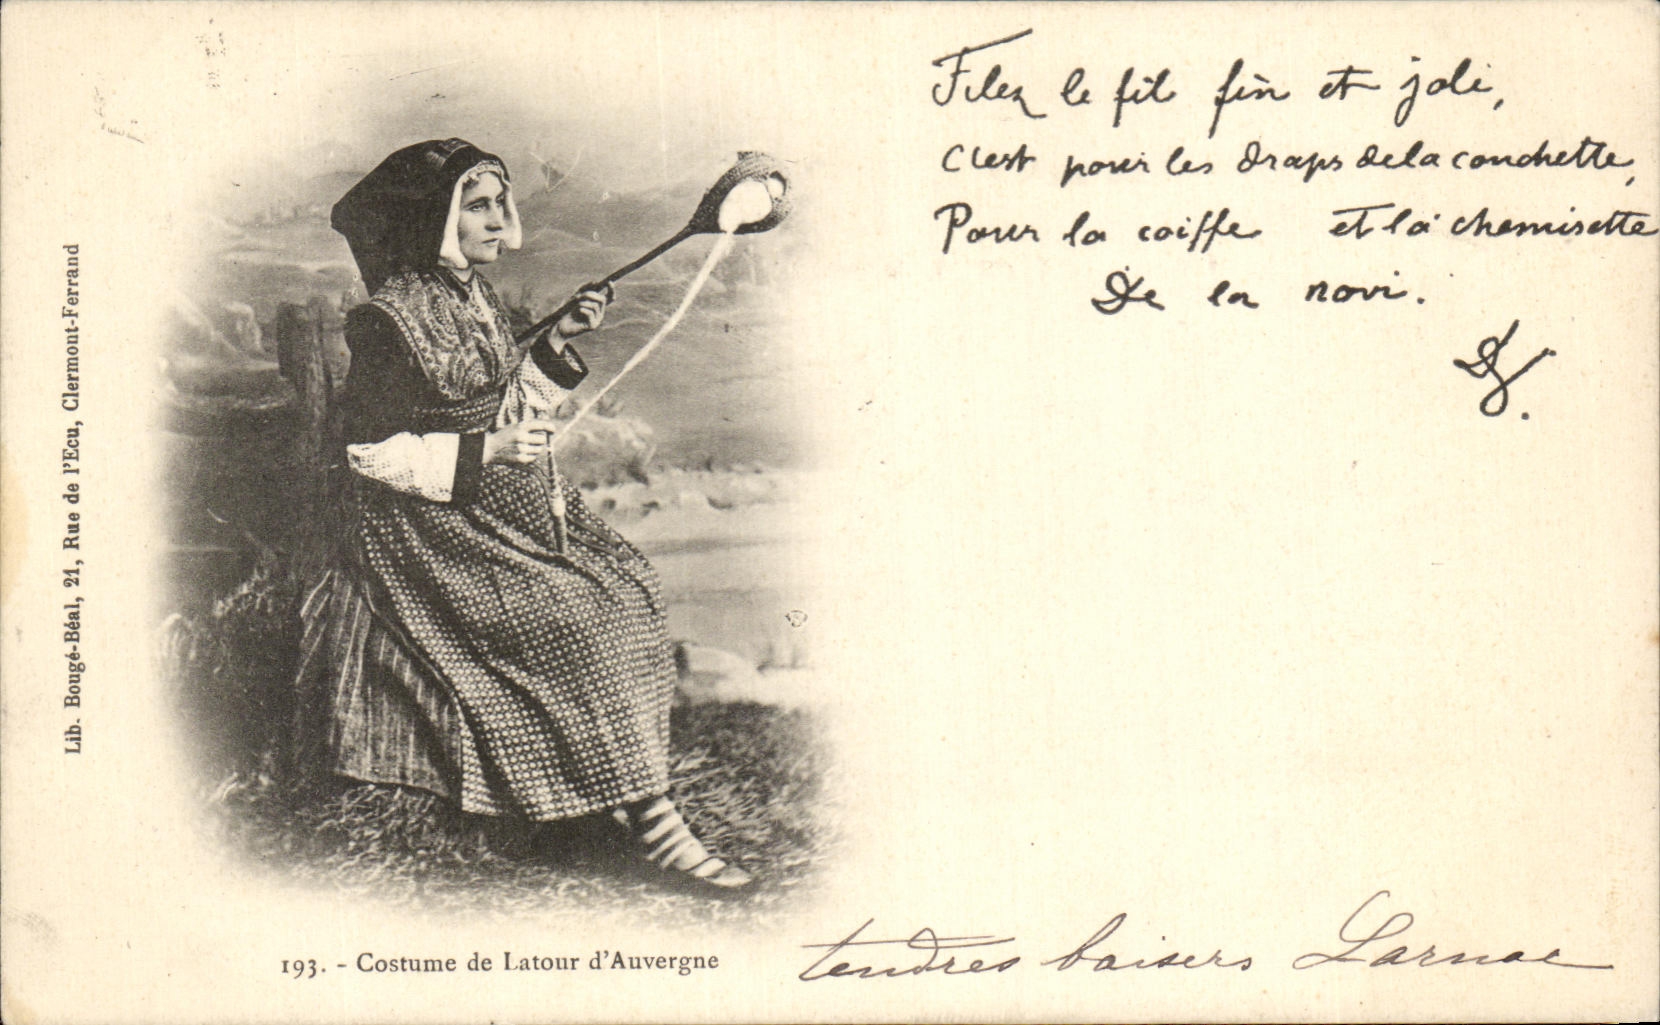 Filez le fil fin et joli,
C'est pour les draps de la couchette,
Pour la coiffe et la chemisette
De la novi.
Lib. Bougé-Béal, 21, Rue de l'Ecu, Clermont-Ferrand
193. - Costume de Latour d'Auvergne
tendres baisers